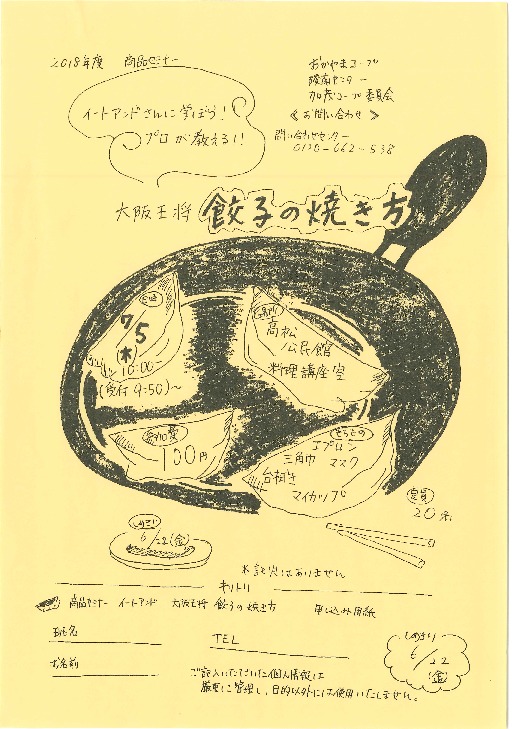 2018年度 商品セミナー
おかやまコープ
加茂コープ委員会
《お問い合わせ》
問い合わせセンター
0120-662-538
イートアンドさんに学ぼう!
プロが教える!!
大阪王将 餃子の焼き方
日時
7/5
(木)
10:00
(受付 9:50)~
場所
高松
公民館
料理講座室
参加費
100円
もちもの
エプロン
三角巾 マスク
台ふき
マイカップ
定員
20名
しめきり
6/22(金)
*託児はありません
キリトリ
商品セミナー イートアンド 大阪王将 餃子の焼き方 申し込み用紙
TEL
お名前
しめきり
6/22
(金)
ご記入いただいた個人情報は
厳重に管理し、目的以外には使用いたしません。